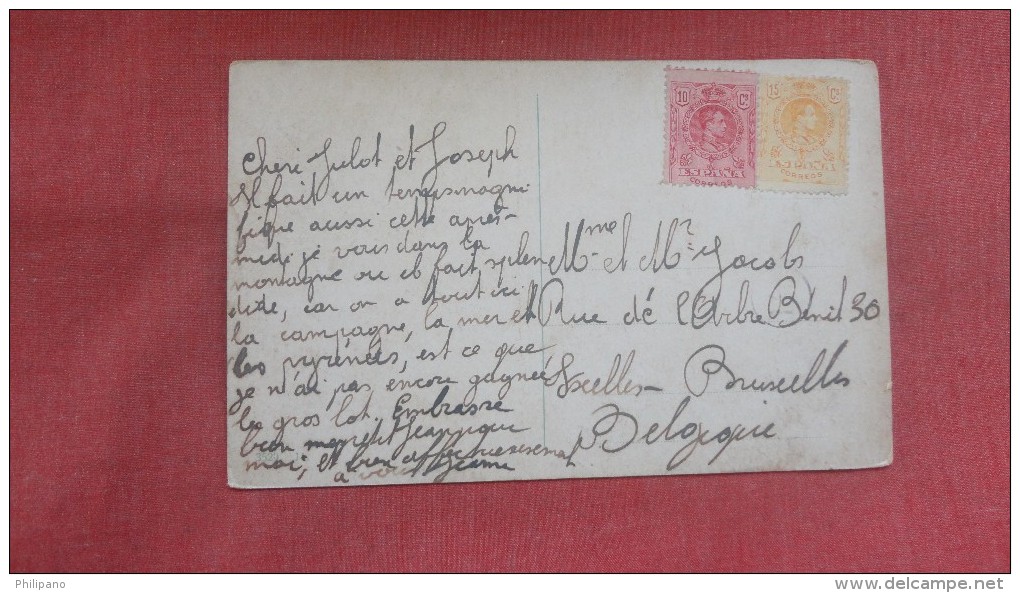 Cheri Julot et Joseph
Il fait un temps magni
fique aussi cette après-
midi je vous dans la
montagne ou il fait splen
dide, car on a tout ici
la campagne, la mer et
les pyrénées, est ce que
je n'ai pas encore gagnée
le gros lot. Embrasse
bien mon petit Jeannique
moi, et bien affectueusement
a vous Jeanne
10 Cs
ESPAÑA
CORREOS
15 Cs
ESPAÑA
CORREOS
Mme et Mr Jacobs
Rue dé l'Arbre Bénit 30
Ixelles - Bruxelles
Belgique
Philipano
www.delcampe.net